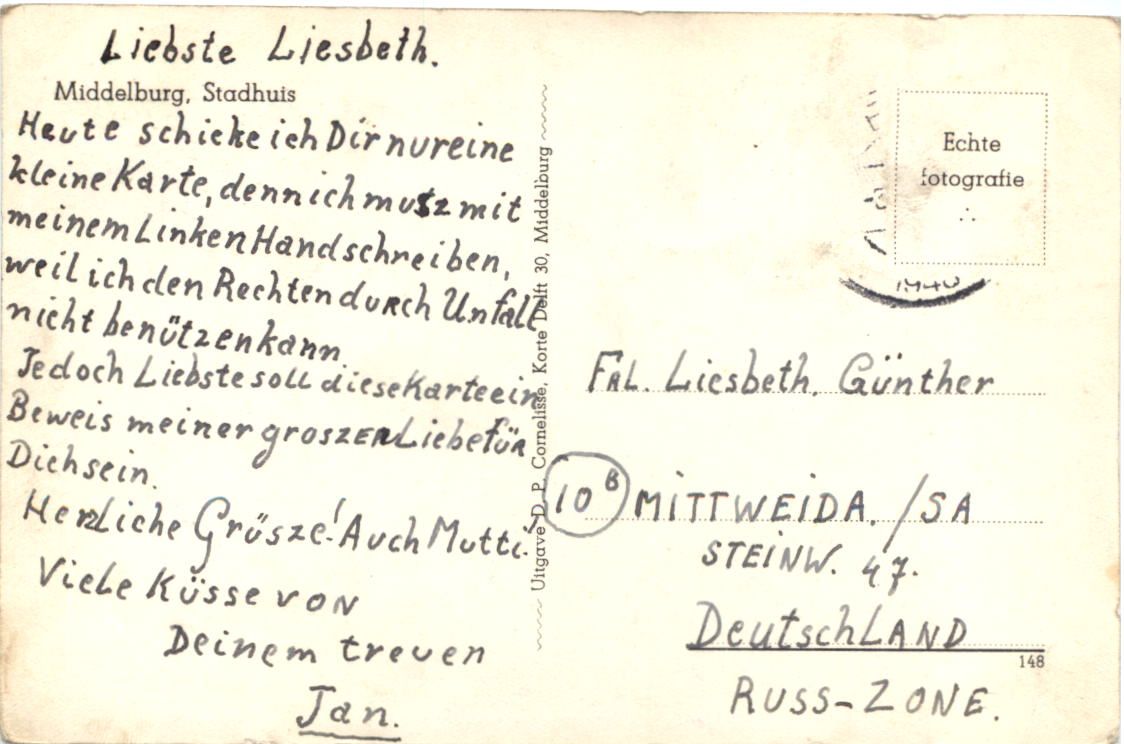 Liebste Liesbeth.
Middelburg, Stadhuis
Heute schicke ich Dir nur eine
kleine Karte, denn ich musz mit
meinem Linken Hand schreiben,
weil ich den Rechten durch Unfall
nicht benützen kann
Jedoch Liebste soll diese Karte ein
Beweis meiner groszen Liebe für
Dich sein.
Herzliche Grüsze! Auch Mutti.
Viele Küsse von
Deinem treuen
Jan.
Uitgave D. P. Cornelisse, Korte Delft 30, Middelburg
Echte
fotografie
Frl. Liesbeth. Günther
10 B MITTWEIDA. / SA
STEINW. 47.
Deutschland
148
RUSS-ZONE.